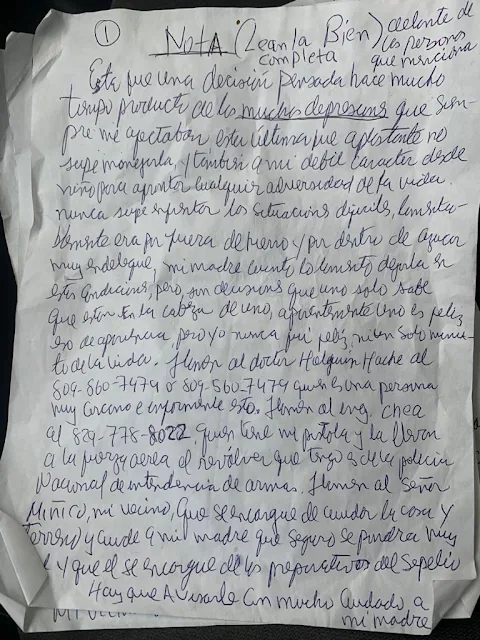 ① NOTA (Lean la Bien) delante de
completa las personas
que menciona
Esta fue una decisión pensada hace mucho
tiempo producto de las muchas depresiones que siem-
pre me afectaban esta última que afrontante no
supe manejarla, y también a mi debil caracter desde
niño para afrontar cualquier adversidad de la vida.
nunca supe enfrentar las situaciones dificiles, lamenta-
blemente era por fuera de hierro y por dentro de azucar
muy endeleque, mi madre cuanto lo lamento dejarla en
estas condiciones, pero, son decisiones que uno solo sabe
que estan en la cabeza de uno, aparentemente uno es feliz
eso de apariencia, pero yo nunca fui feliz, ni un solo minu-
to de la vida. Llamen al doctor Holguin Hache al
809-860-7479 o 809-560-7479 quien es una persona
muy cercana e infórmenle esto. Llamen al ing. Chea
al 829-778-8022 quien tiene mi pistola y la lleven
a la fuerza aerea el revólver que tengo es de la policia
Nacional de intendencia de armas. Llamen al Señor
MIÑICO, mi vecino, que se encargue de cuidar la casa y
terreno y cuide a mi madre que seguro se pondra muy
y que el se encargue de los preparativos del Sepelio
Hay que Avisarle con mucho cuidado a
mi madre